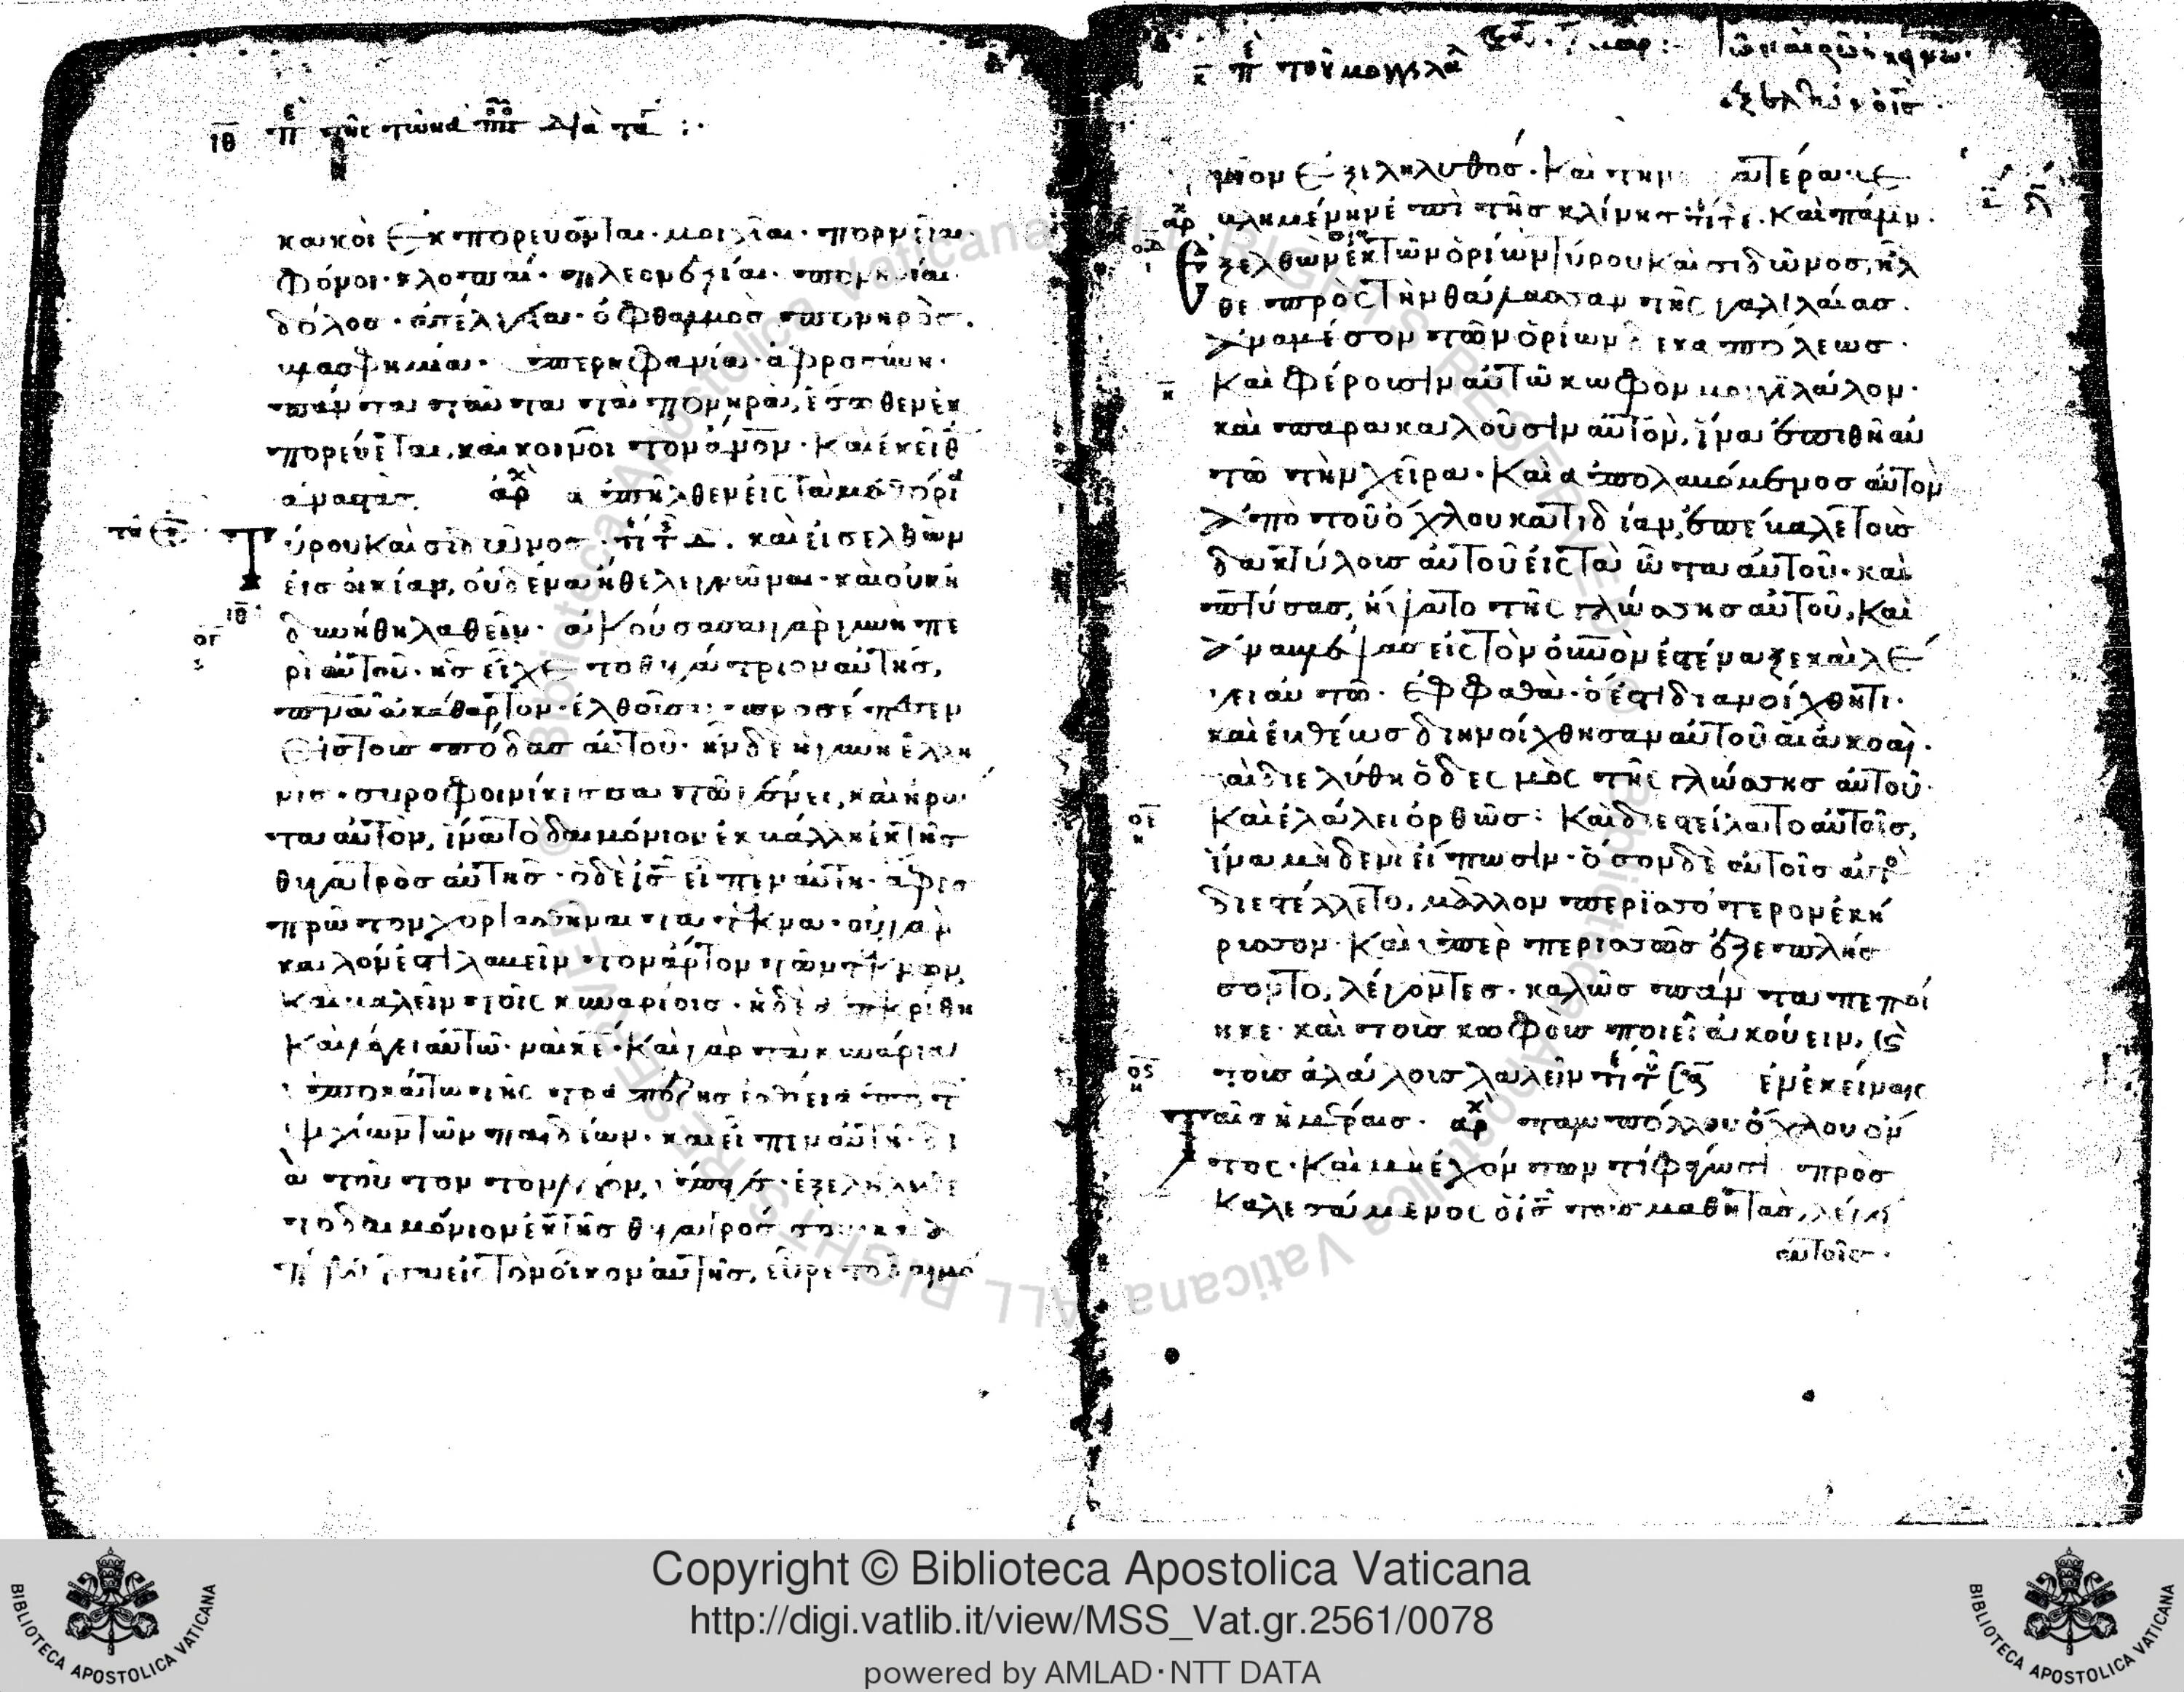 ιθ πε της
κακοὶ ἐκπορεύονται· μοιχίαι· πορνεῖαι·
φόνοι· κλοπαί· πλεονεξίαι· πονηρίαι·
δόλος· ἀσέλγεια· ὀφθαλμὸς πονηρὸς·
βλασφημία· ὑπερηφανία· ἀφροσύνη·
πάντα ταῦτα τὰ πονηρὰ, ἔσωθεν ἐκ
πορεύεται, καὶ κοινοῖ τὸν ἄνον· Καὶ ἐκεῖθ
ἀναστὰς αρχ ἀπῆλθεν εἰς τὰ μεθόρι
Τύρου Καὶ σιδῶνος· Καὶ εἰσελθὼν
εἰς οἰκίαν, οὐδένα ἤθελε γνῶναι· καὶ οὐκ ἠ
ιθ
ογ
δυνήθη λαθεῖν· ἀκούσασα γὰρ γυνὴ πε
ρὶ αὐτοῦ· ἧς εἶχε τὸ θυγάτριον αὐτῆς,
πνα ἀκάθαρτον· ἐλθοῦσα προσέπεσεν
εἰς τοὺς πόδας αὐτοῦ· ἦν δὲ ἡ γυνὴ ἑλλη
νις· συροφοινίκισσα τῷ γένει, καὶ ἠρώ
τα αὐτὸν, ἵνα τὸ δαιμόνιον ἐκβάλλῃ ἐκ τῆς
θυγατρὸς αὐτῆς· ὁ δὲ ις εἶπεν αὐτῇ· ἄφες
πρῶτον χορτασθῆναι τὰ τέκνα· οὐ γὰρ
καλόν ἐστι λαβεῖν τὸν ἄρτον τῶν τέκνων,
Καὶ βαλεῖν τοῖς κυναρίοις· ἡ δὲ ἀπεκρίθη
Καὶ λέγει αὐτῶ· ναὶ κε· Καὶ γὰρ τὰ κυνάρια
ὑποκάτω τῆς τραπέζης ἐσθίει ἀπὸ τ
ψιχίων τῶν παιδίων· καὶ εἶπεν αὐτῇ· δι
ὰ τοῦτον τὸν λόγον, ὕπαγε· ἐξελήλυθε
τὸ δαιμόνιον ἐκ τῆς θυγατρός σου
εἰς τὸν οἶκον αὐτῆς, εὗρε τὸ δαιμό
κ πε του μογγιλα
νιον ἐξεληλυθός· Καὶ τὴν θυγατέρα βε
βλημένην ἐπὶ τῆς κλίνης. Καὶ πάλιν
οδ
ἐξελθὼν ἐκ τῶν ὁρίων τύρου καὶ σιδῶνος, ἦλ
θε πρὸς τὴν θάλασσαν τῆς γαλιλαίας·
ἀναμέσον τῶν ὁρίων δεκαπόλεως·
κ
Καὶ φέρουσιν αὐτῶ κωφὸν μογγιλάλον·
καὶ παρακαλοῦσιν αὐτὸν, ἵνα ἐπιθῆ αὐ
τῶ τὴν χεῖρα· Καὶ ἀπολαβόμενος αὐτὸν
ἀπὸ τοῦ ὄχλου κατιδίαν, ἐπέβαλε τοὺς
δακτύλους αὐτοῦ εἰς τὰ ὦτα αὐτοῦ· καὶ
πτύσας, ἥψατο τῆς γλώσσης αὐτοῦ, Καὶ
ἀναβλέψας εἰς τὸν οὐνον ἐστέναξε καὶ λέ
γει αὐτῶ· ἐφφαθὰ· ὅ ἐστι διανοίχθητι·
καὶ εὐθέως διηνοίχθησαν αὐτοῦ αἱ ἀκοαὶ·
καὶ διελύθη ὁ δεσμὸς τῆς γλώσσης αὐτοῦ·
οε
η
Καὶ ἐλάλει ὀρθῶς: Καὶ διεστείλατο αὐτοῖς,
ἵνα μηδενὶ εἴπωσιν· ὅσον δὲ αὐτοῖς αὐτὸ
διεστέλλετο, μᾶλλον περισσότερον ἐκή
ρυσσον· Καὶ ὑπερπερισσῶς ἐξεπλήσ
σοντο, λέγοντες· καλῶς πάντα πεποί
ηκε· καὶ τοὺς κωφοὺς ποιεῖ ἀκούειν, κ
ος
η
τοὺς ἀλάλους λαλεῖν ἐν ἐκείναις
Ταῖς ἡμέραις· αρχ παμπόλλου ὄχλου ὄν
τος· Καὶ μὴ ἐχόντων τί φάγωσι προσ
καλεσάμενος ὁ ις τοὺς μαθητὰς, λέγει
αὐτοῖς·
Copyright © Biblioteca Apostolica Vaticana
http://digi.vatlib.it/view/MSS_Vat.gr.2561/0078
powered by AMLAD·NTT DATA
BIBLIOTECA APOSTOLICA VATICANA
BIBLIOTECA APOSTOLICA VATICANA